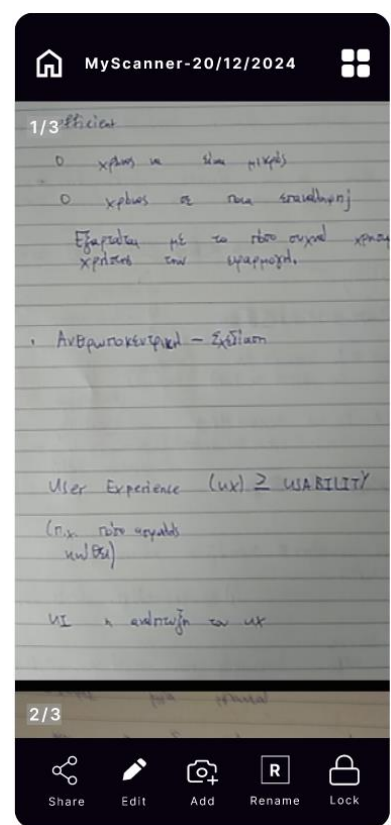 MyScanner-20/12/2024
1/3
efficient
Ο χρόνος να είναι μικρός
Ο χρόνος σε ποια επανάληψη
Εξαρτάται με το πόσο συχνά
χρήστης την εφαρμογή.
Ανθρωποκεντρική - Σχεδίαση
User Experience (UX) ≥ USABILITY
(π.χ. πόσο
UI η ανάπτυξη του UX
2/3
Share
Edit
Add
R
Rename
Lock